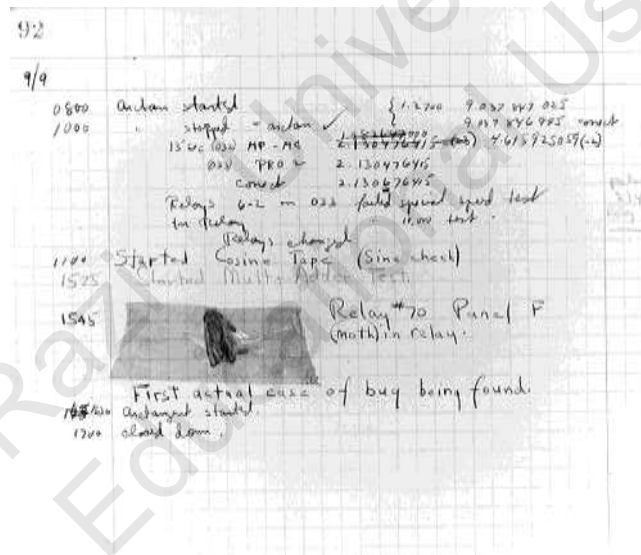 92
9/9
0800 Antan started
1000 " stopped - antan ✓ { 1.2700 9.037 847 025
9.037 846 995 correct
13"uc (032) MP - MC 2.130476415 (-3) 4.615925059(-2)
033 PRO 2 2.130476415
correct 2.130676415
Relays 6-2 in 033 failed special speed test
In Relay 11.000 test.
Relays changed
1100 Started Cosine Tape (Sine check)
1525 Started Multi Adder Test.
1545 Relay #70 Panel F
(moth) in relay.
First actual case of bug being found.
1630 antangent started.
1700 closed down.
Razi University
Educational Us